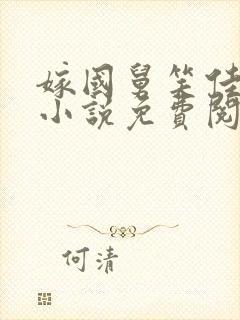 嫁國舅笑佳
小說免費閱
何清